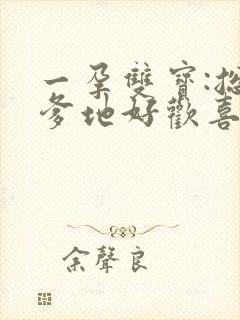 一孕雙寶:
爹地好歡喜
余聲良